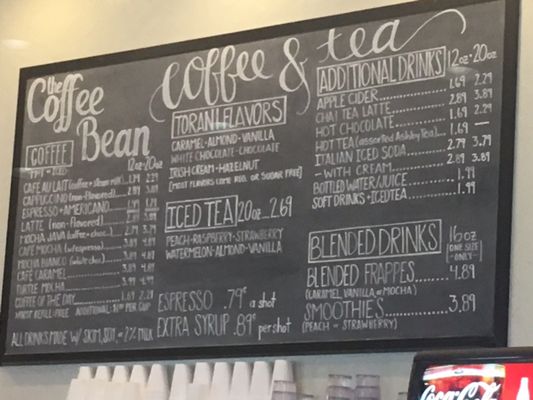 the Coffee Bean
coffee & tea
COFFEE
HOT or ICED
12oz • 20oz
CAFE AU LAIT (coffee + steam milk)
CAPPUCCINO (non-flavored)
ESPRESSO • AMERICANO
LATTE (non-flavored)
MOCHA JAVA (coffee + choc.)
CAFE MOCHA (w/espresso)
MOCHA BIANCO (white choc)
CAFE CARAMEL
TURTLE MOCHA
COFFEE OF THE DAY 1.69 2.29
REFILL PER CUP
ALL DRINKS MADE W/ SKIM, or 2% MILK
TORANI FLAVORS
CARAMEL-ALMOND-VANILLA
WHITE CHOCOLATE-CHOCOLATE
IRISH CREAM-HAZELNUT
(MOST FLAVORS COME REG. OR SUGAR FREE)
ICED TEA 20oz 2.69
PEACH-RASPBERRY-STRAWBERRY
WATERMELON-ALMOND-VANILLA
ESPRESSO .79¢ a shot
EXTRA SYRUP .89¢ per shot
ADDITIONAL DRINKS 12oz • 20oz
APPLE CIDER 1.69 2.29
CHAI TEA LATTE 2.89 3.89
HOT CHOCOLATE 1.69 2.29
HOT TEA (assorted Ashby Tea) 1.69 —
ITALIAN ICED SODA 2.79 3.79
-WITH CREAM 2.89 3.89
BOTTLED WATER/JUICE 1.99
SOFT DRINKS • ICED TEA 1.99
BLENDED DRINKS 16oz
(ONE SIZE ONLY)
BLENDED FRAPPES 4.89
(CARAMEL, VANILLA or MOCHA)
SMOOTHIES 3.89
(PEACH or STRAWBERRY)
Coca-Cola